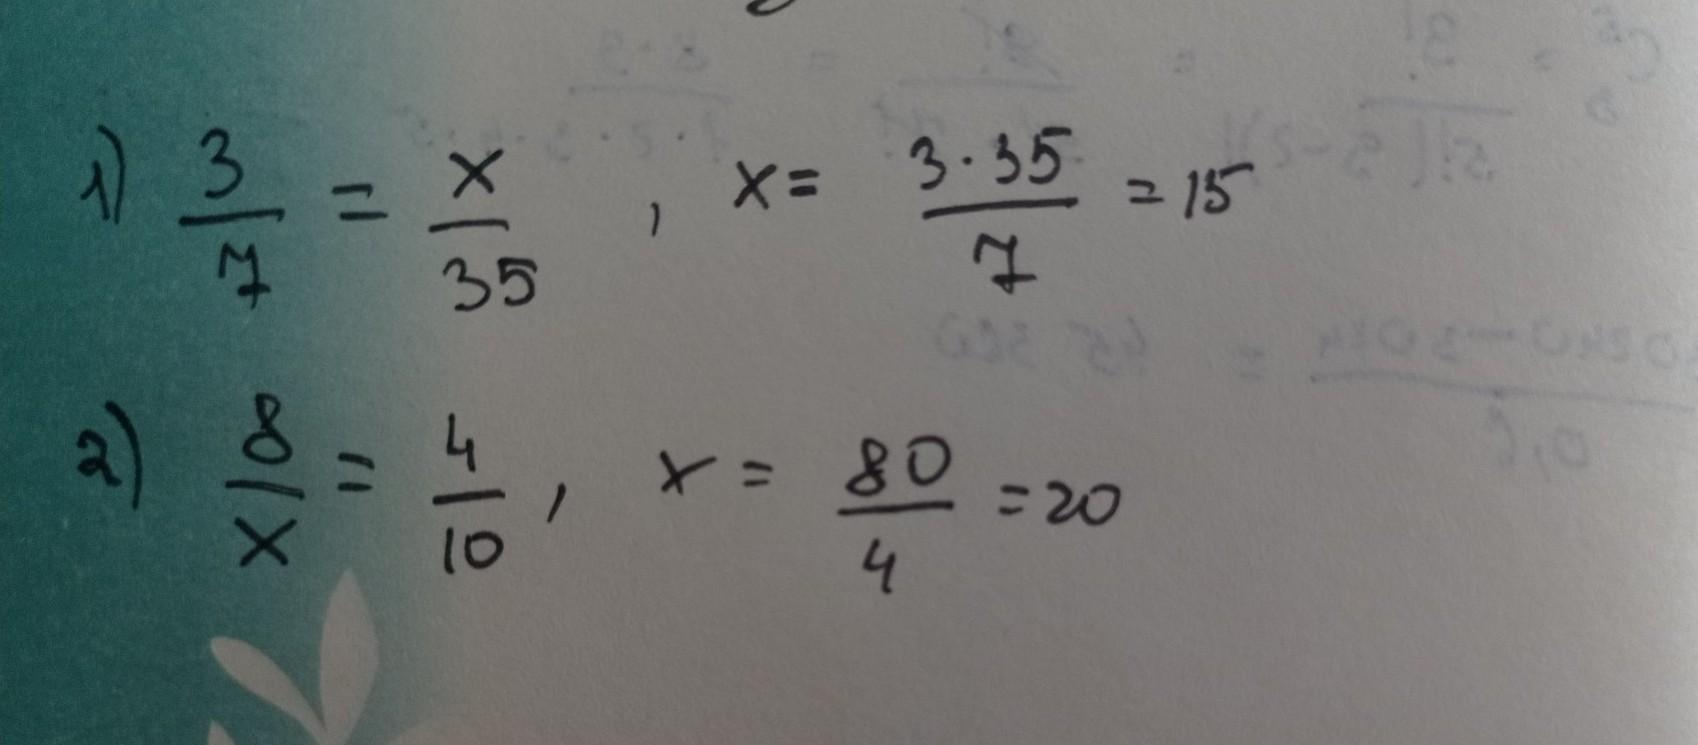 1) 3/7 = x/35 , x = 3·35/7 = 15
2) 8/x = 4/10 , x = 80/4 = 20